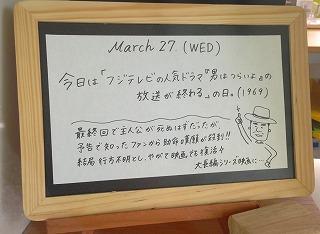 March 27. (WED)
今日は「フジテレビの人気ドラマ『男はつらいよ』の
放送が終わる」の日。(1969)
最終回で主人公が死ぬはずだったが、
予告で知ったファンから助命嘆願が殺到!!
結局 行方不明とし、やがて映画でも復活し
大長編シリーズ映画に…